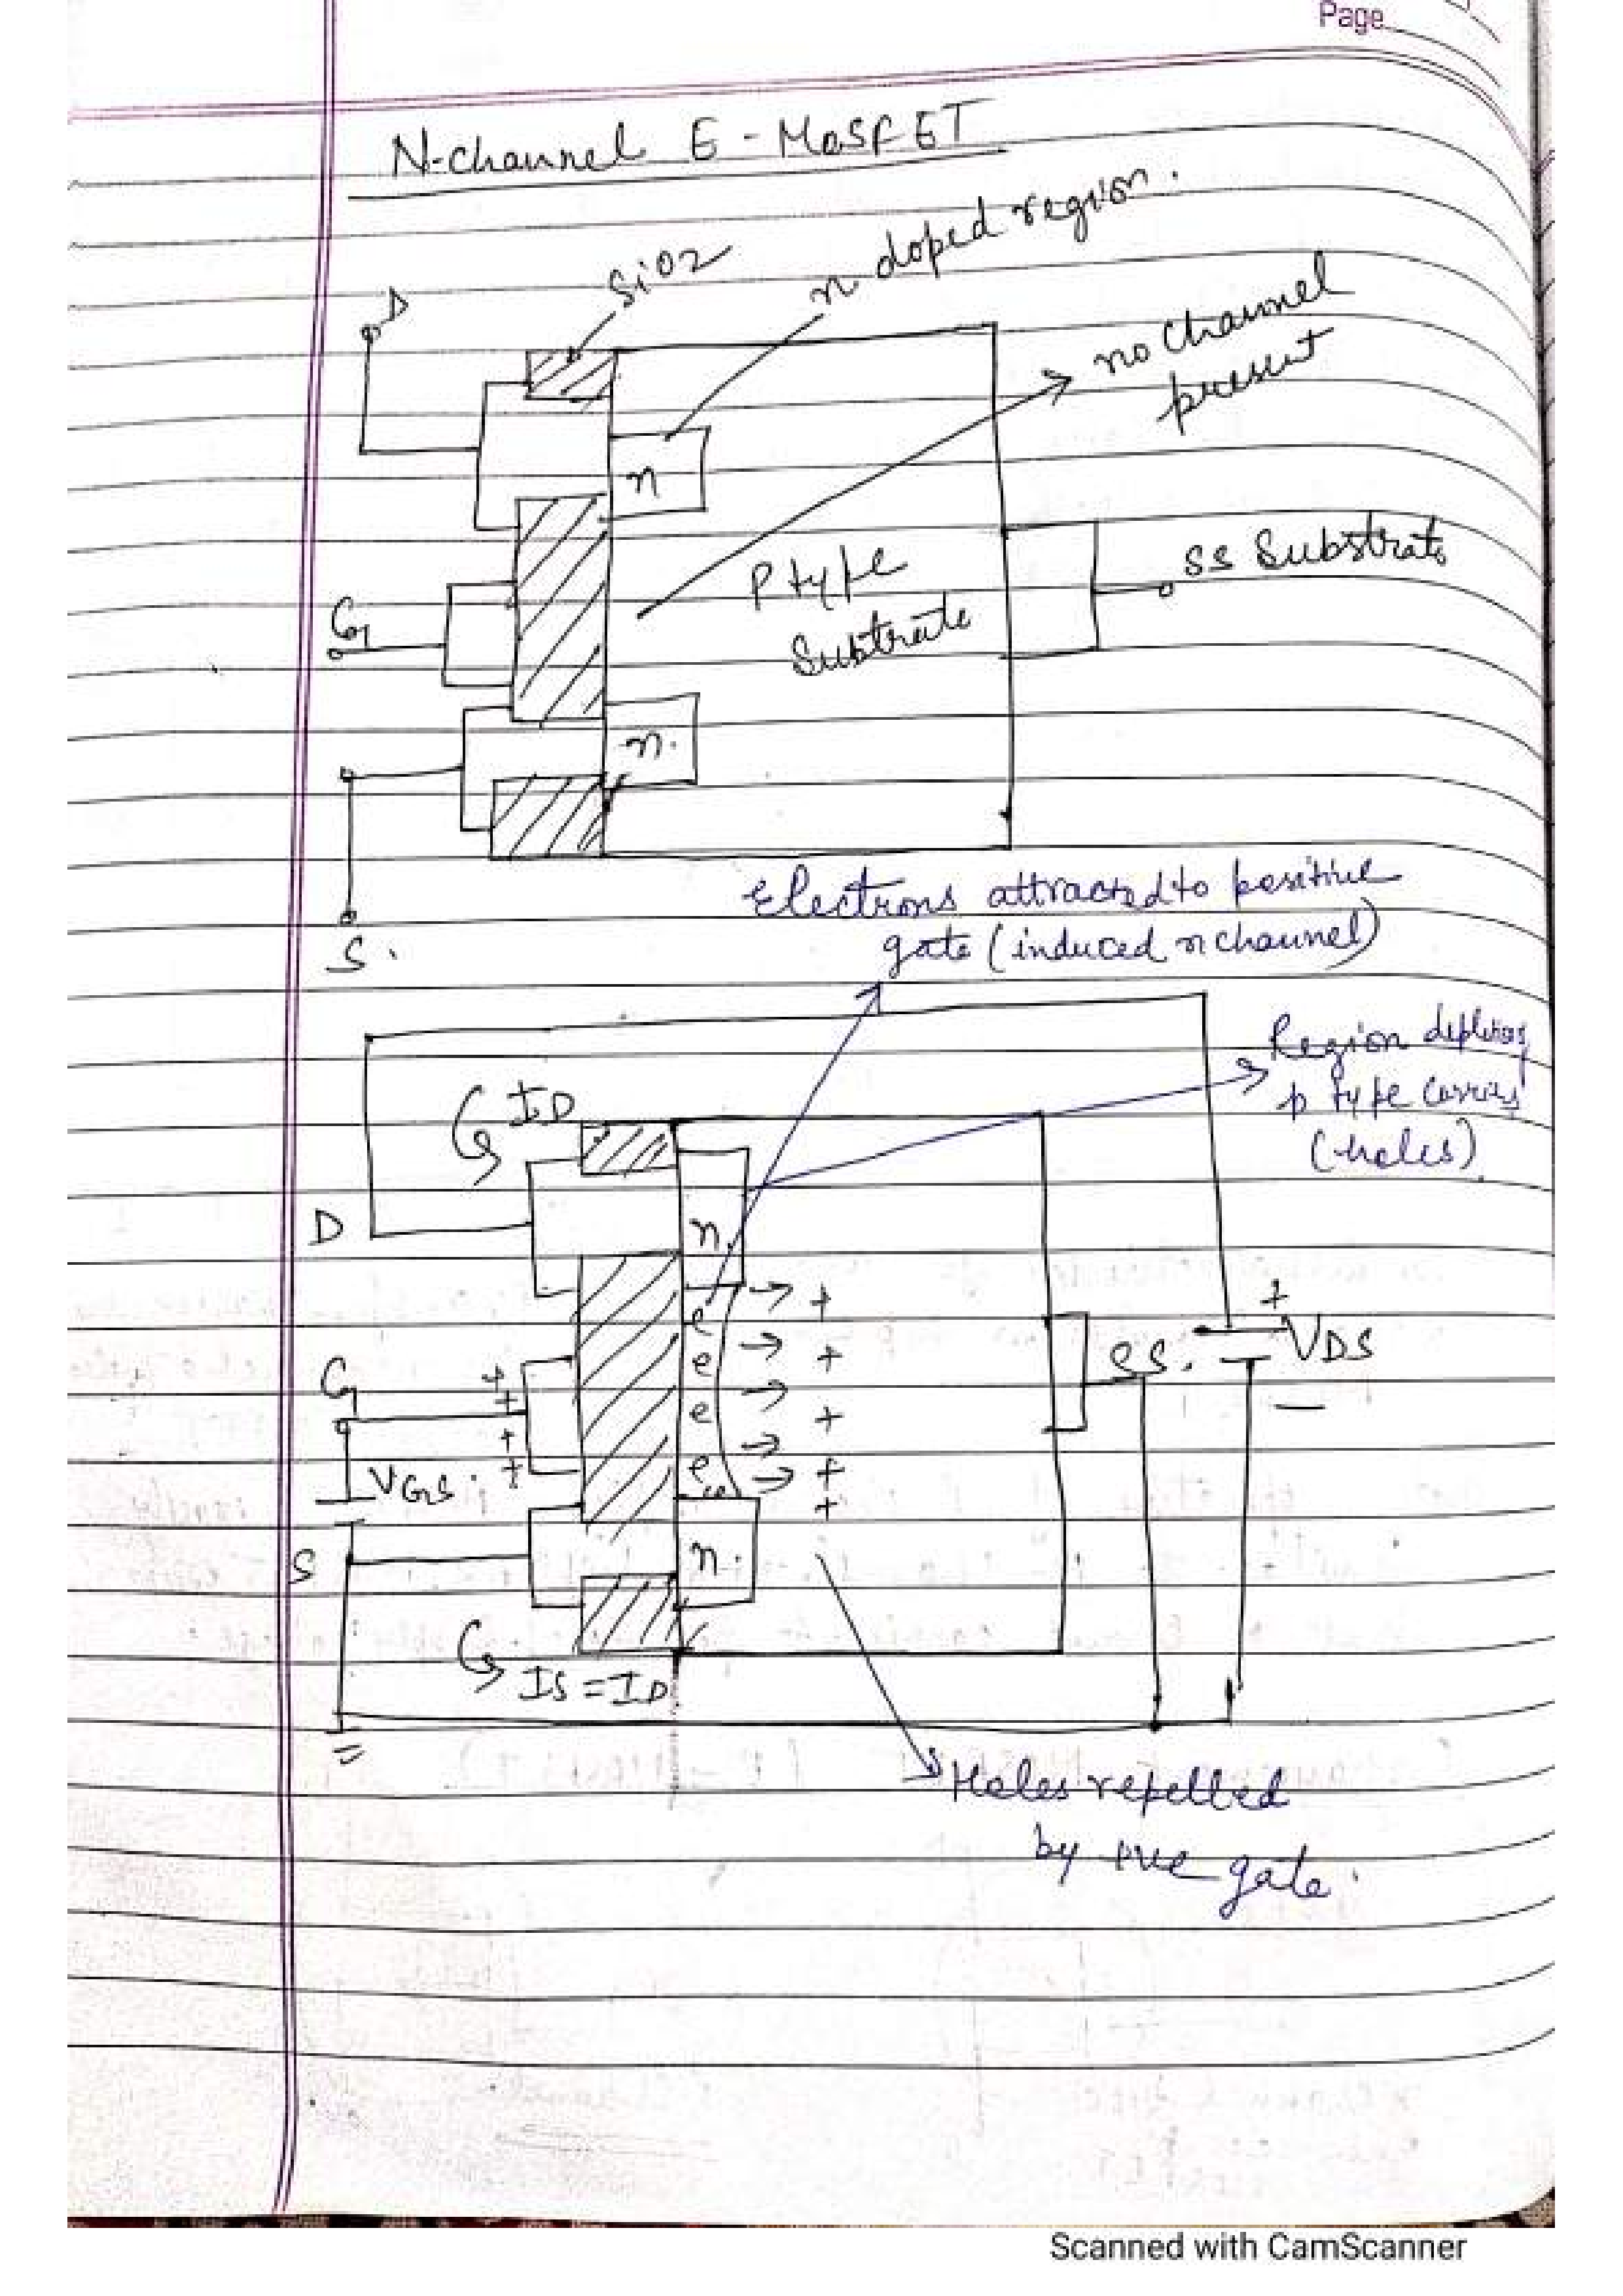 Page
N-channel E-MOSFET
SiO2
n doped region.
D
no channel
present
n
P type
Subtrate
SS Substrate
G
n.
S.
Electrons attracted to positive
gate (induced n channel)
Region depleting
p type carriers
(holes)
ID
D
n.
e → +
e → +
e → +
e → +
e → +
+
G
+
+
+
+
VGS
SS.
+
VDS
-
S
n.
IS = ID
Holes repelled
by +ve gate.
Scanned with CamScanner